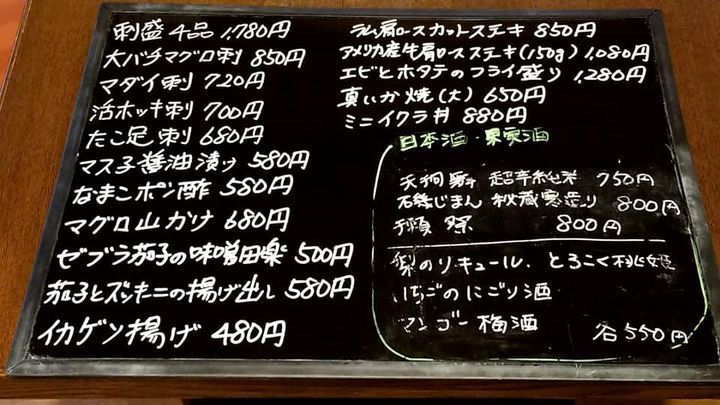 刺盛4品 1,780円
大バチマグロ刺 850円
マダイ刺 720円
活ホッキ刺 700円
たこ足刺 680円
マス子醤油漬け 580円
なまこポン酢 580円
マグロ山かけ 680円
ゼブラ茄子の味噌田楽 500円
茄子とズッキーニの揚げ出し 580円
イカゲソ揚げ 480円
ラム肩ロースカットステーキ 850円
アメリカ産牛肩ロースステーキ(150g) 1,080円
エビとホタテのフライ盛り 1,280円
真いか焼(大) 650円
ミニイクラ丼 880円
日本酒・果実酒
天狗舞 超辛純米 750円
磯じまん 秘蔵寒造り 800円
獺祭 800円
梨のリキュール、とろこく桃姫
いちごのにごり酒
マンゴー梅酒
各550円